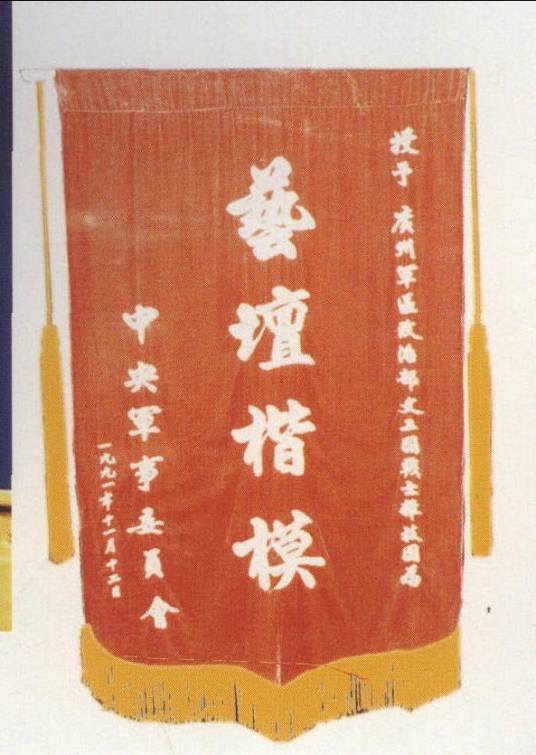 授予 广州軍区政治部文工团戰士雜技团为
藝壇楷模
中央軍事委員會
一九九一年十一月十二日